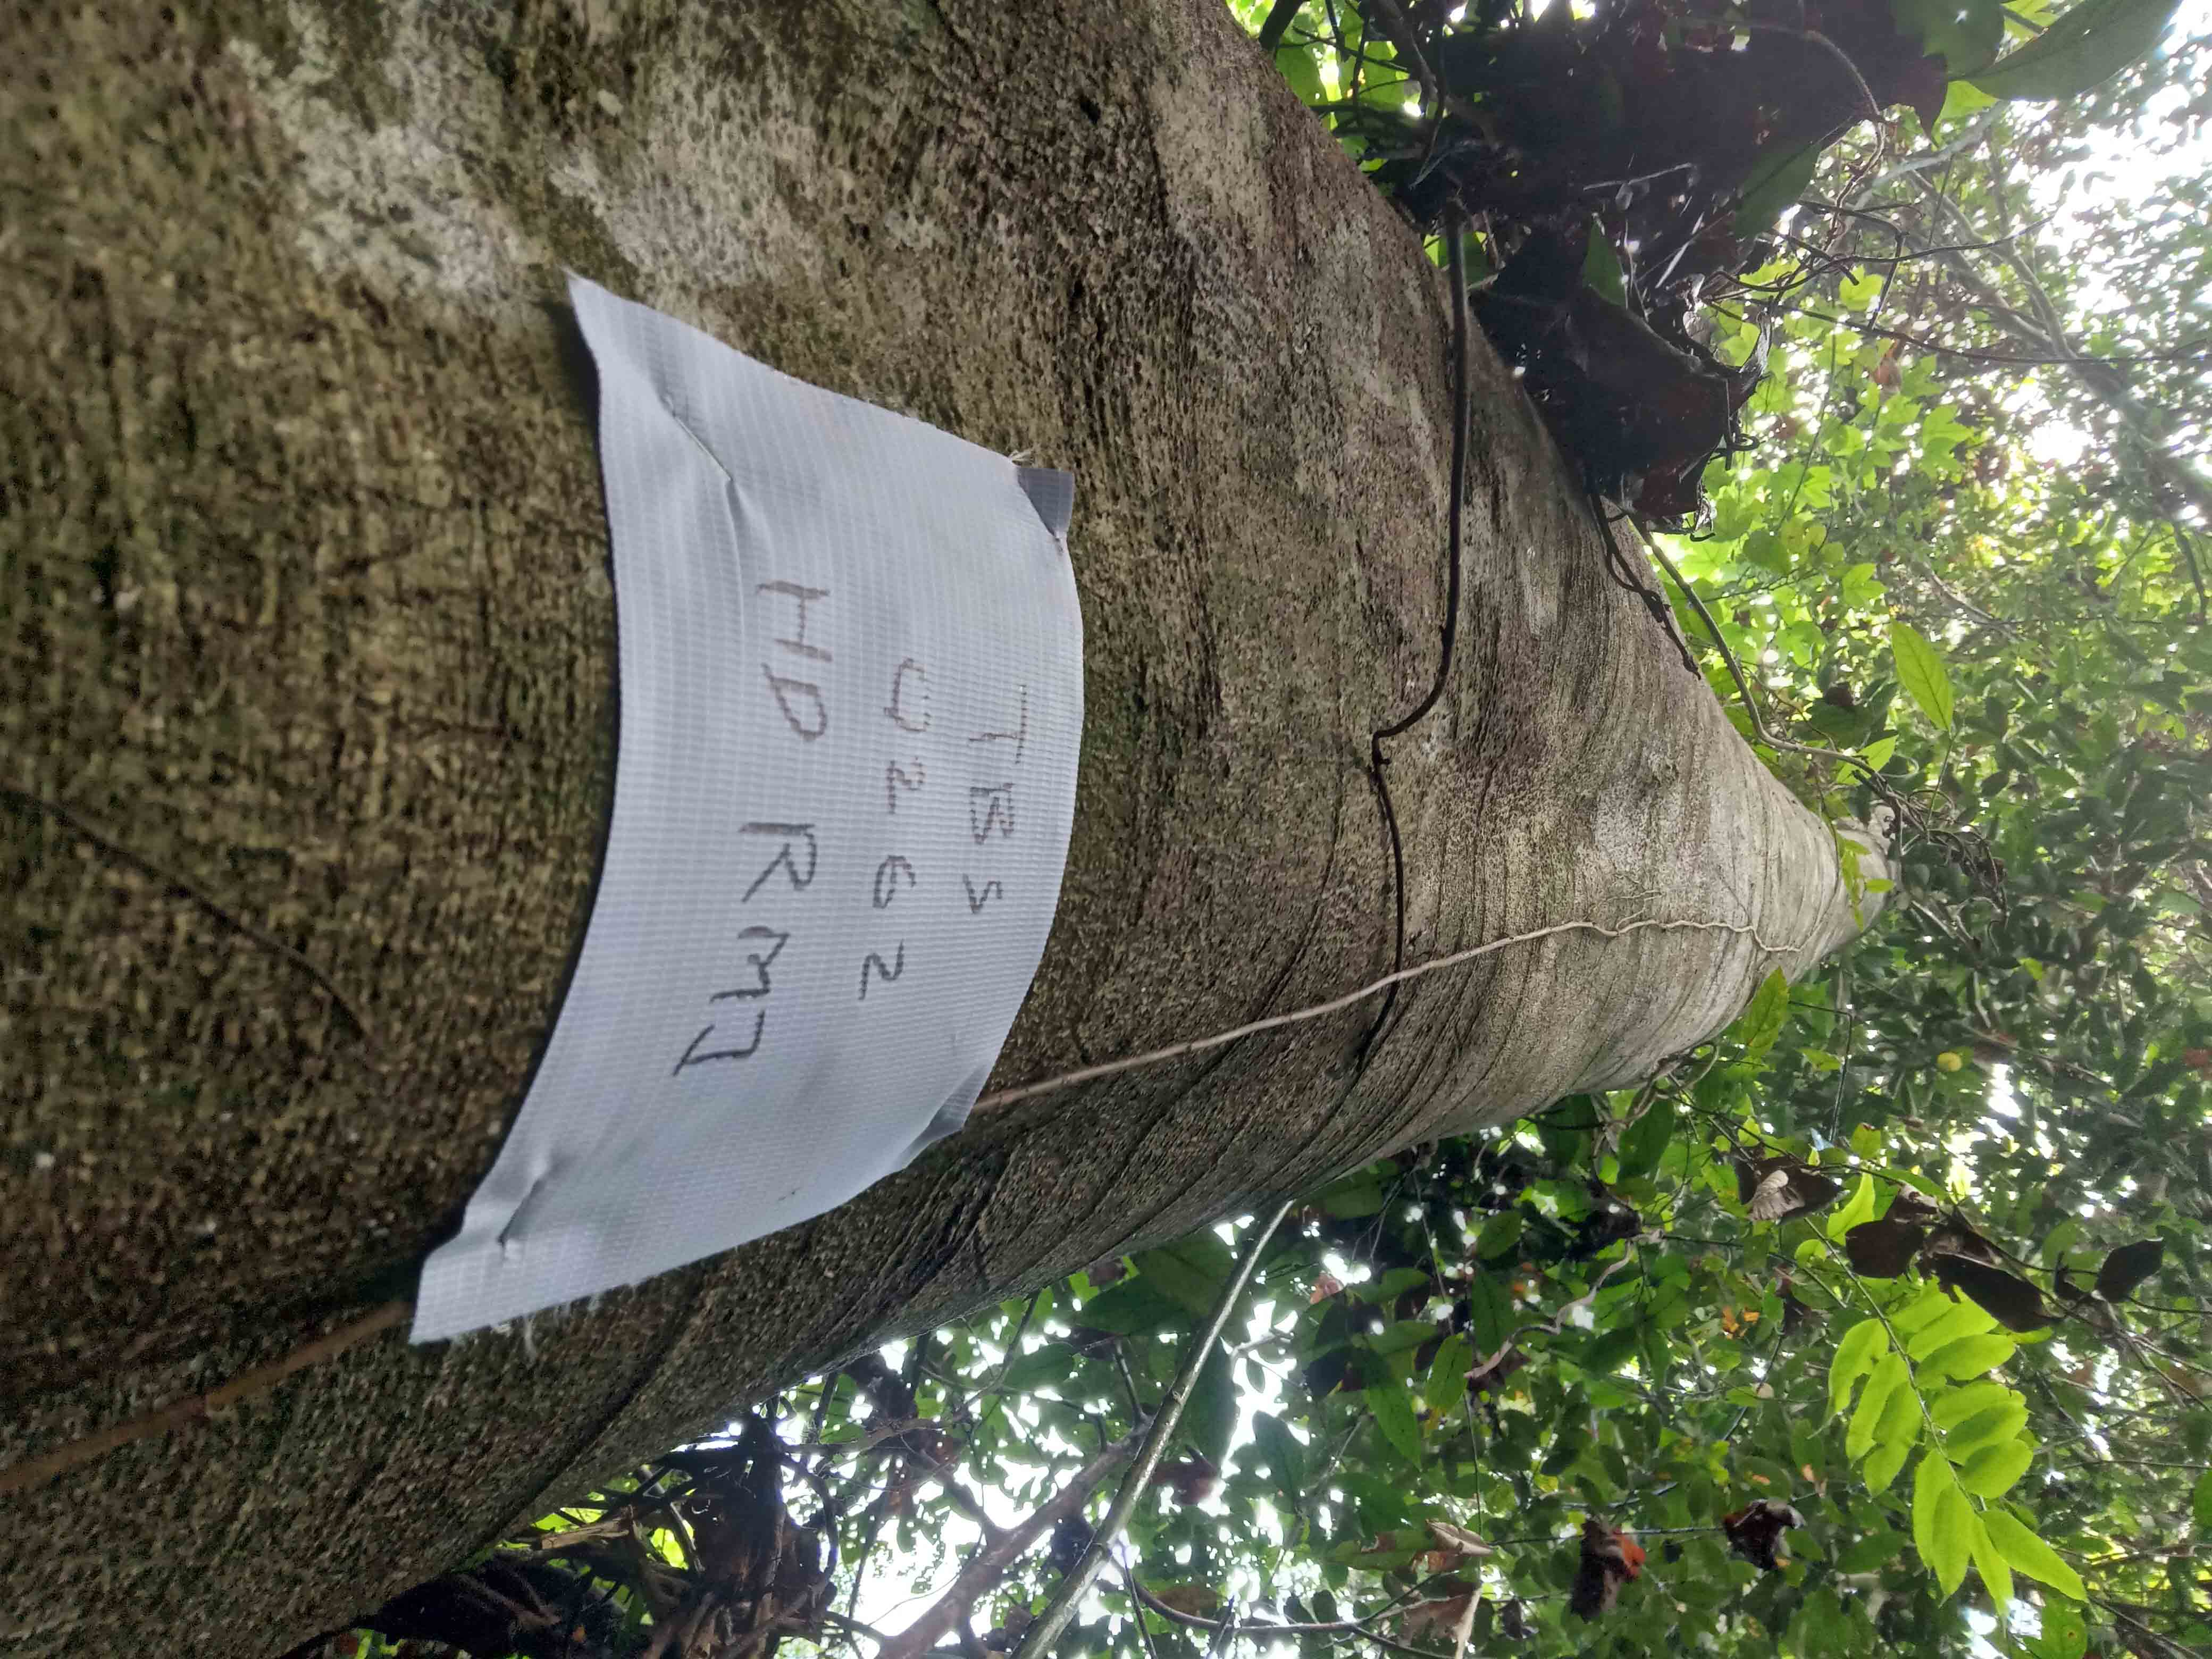 TBS
0262
HD RMJ